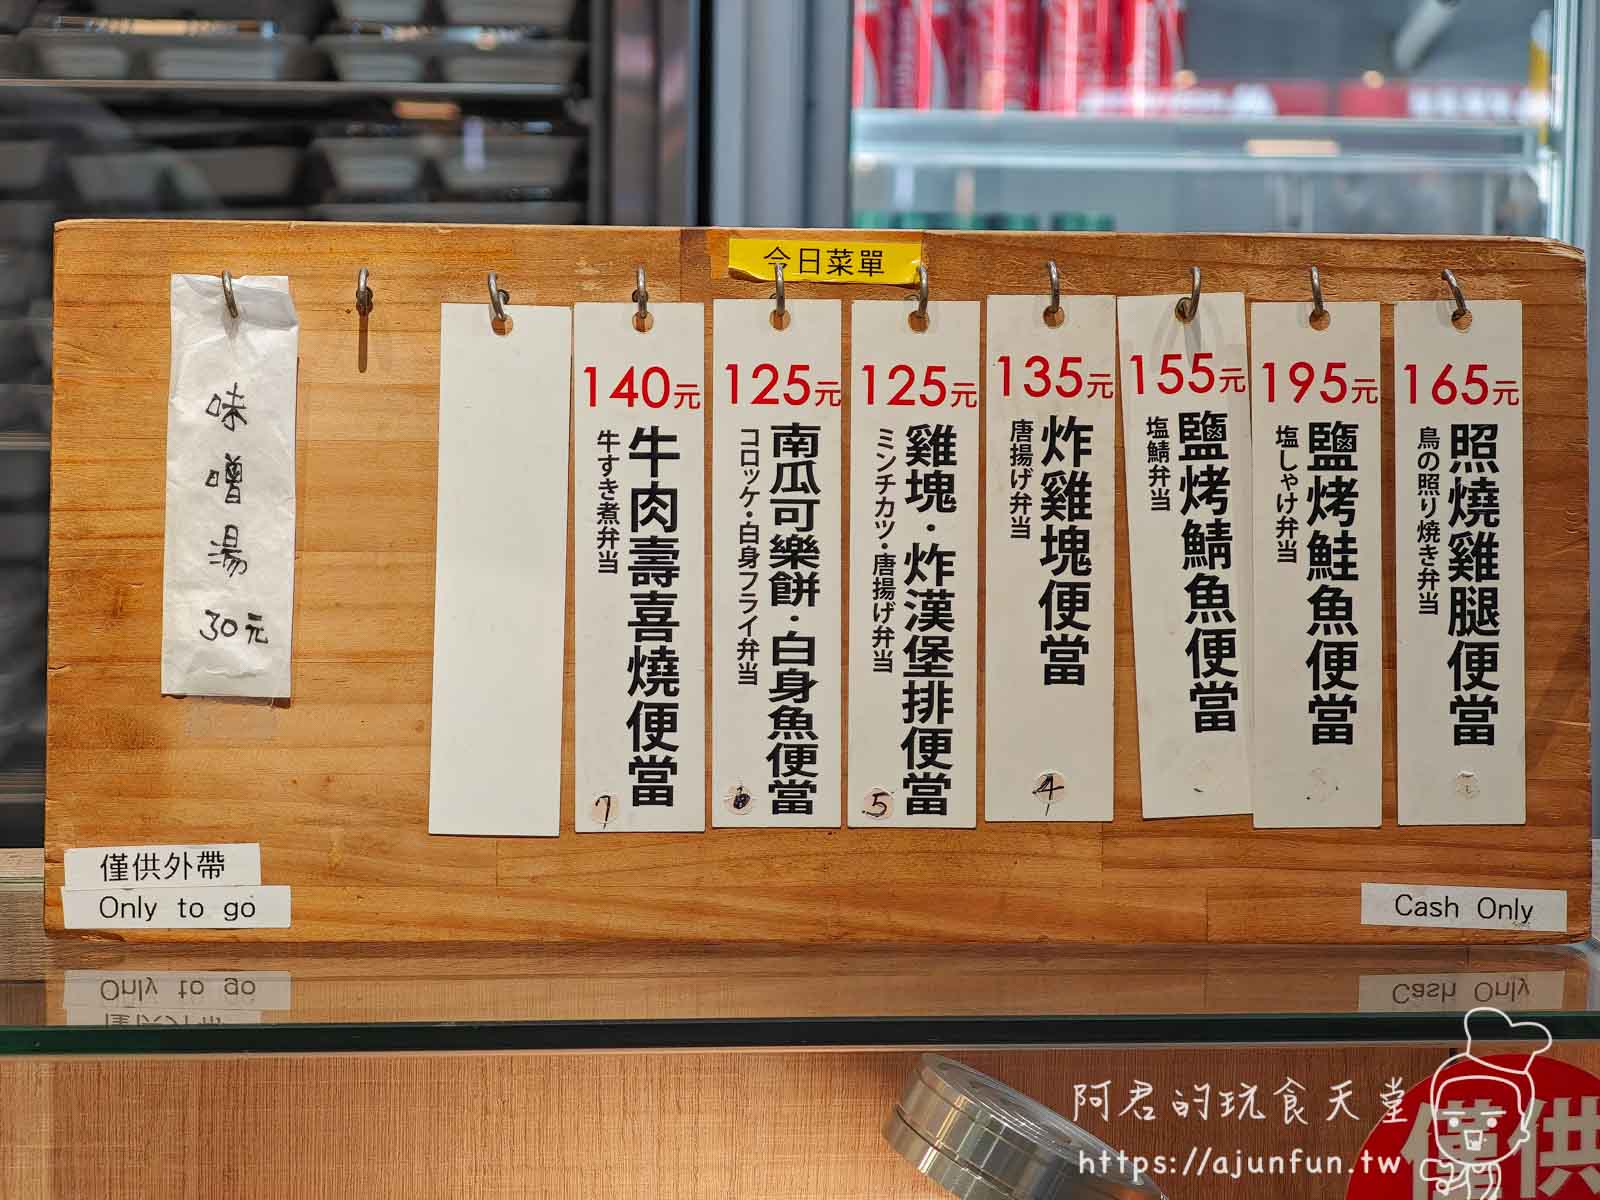 今日菜單
165元
照燒雞腿便當
鳥の照り焼き弁当
195元
鹽烤鮭魚便當
塩しゃけ弁当
155元
鹽烤鯖魚便當
塩鯖弁当
135元
炸雞塊便當
唐揚げ弁当
4
125元
雞塊·炸漢堡排便當
ミンチカツ·唐揚げ弁当
5
125元
南瓜可樂餅·白身魚便當
コロッケ·白身フライ弁当
140元
牛肉壽喜燒便當
牛すき煮弁当
7
味噌湯
30元
僅供外帶
Only to go
Cash Only
阿君的玩食天堂
https://ajunfun.tw
僅供